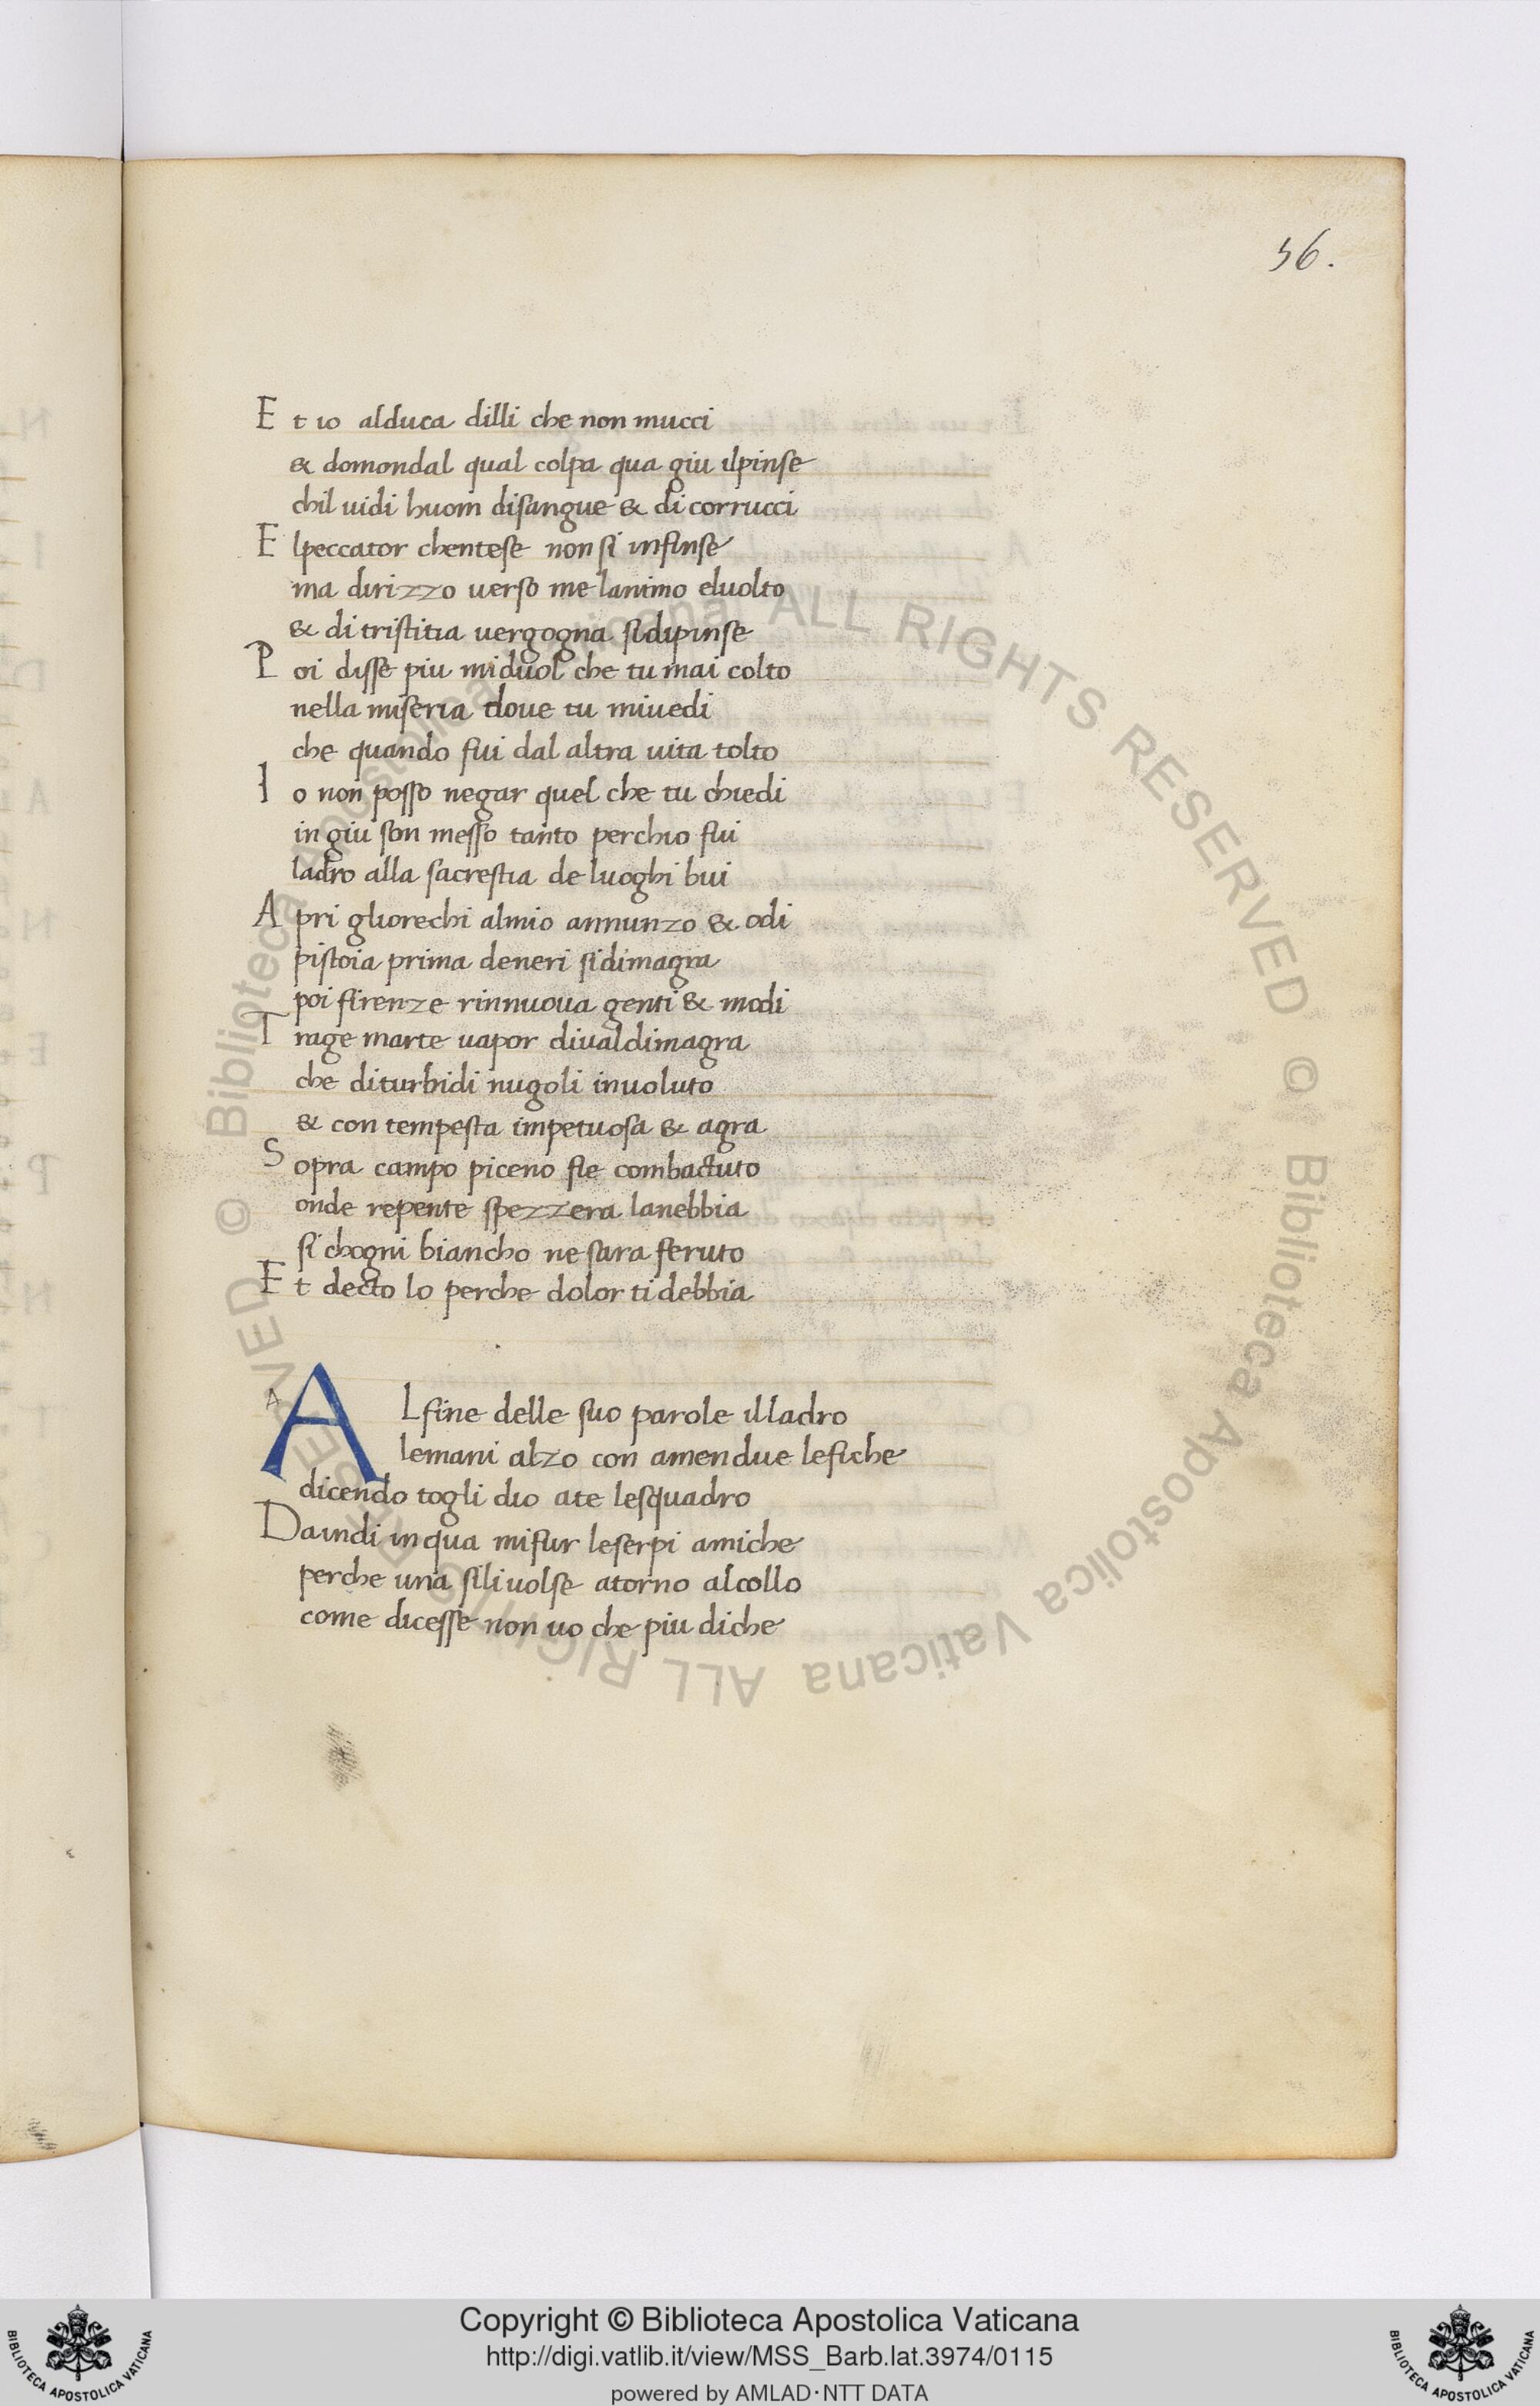 56.
E t io alduca dilli che non mucci
& domondal qual colpa qua giu ilpinse
chil uidi huom disangue & di corrucci
E lpeccator chentese non si infinse
ma dirizzo uerso me lanimo eluolto
& di tristitia uergogna sidipinse
P oi disse piu miduol che tu mai colto
nella miseria doue tu miuedi
che quando fui dal altra uita tolto
I o non posso negar quel che tu chiedi
in giu son messo tanto perchio fui
ladro alla sacrestia de luoghi bui
A pri gliorechi almio annunzo & odi
pistoia prima deneri sidimagra
poi firenze rinnuoua genti & modi
T rage marte uapor diualdimagra
che diturbidi nugoli inuoluto
& con tempesta impetuosa & agra
S opra campo piceno fie combactuto
onde repente spezzera lanebbia
si chogni biancho ne sara feruto
E t decto lo perche dolor ti debbia
A
A Lfine delle suo parole illadro
lemani alzo con amendue lefiche
dicendo togli dio ate lesquadro
Daindi inqua mifur leserpi amiche
perche una sili uolse atorno alcollo
come dicesse non uo che piu diche
© Biblioteca Apostolica Vaticana ALL RIGHTS RESERVED © Biblioteca Apostolica Vaticana ALL RIGHTS RESERVED
Copyright © Biblioteca Apostolica Vaticana
http://digi.vatlib.it/view/MSS_Barb.lat.3974/0115
powered by AMLAD·NTT DATA
BIBLIOTECA APOSTOLICA VATICANA
BIBLIOTECA APOSTOLICA VATICANA